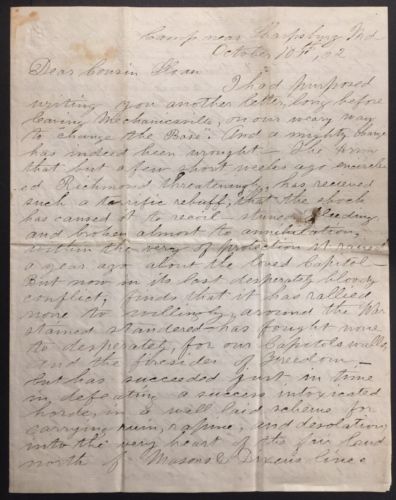 Camp near Sharpsburg Md
October 10th, 62
Dear Cousin
I had purposed
writing you another letter, long before
leaving Mechanicsville, on our weary way
to "change the Base". And a mighty change
has indeed been wrought - The
that but a few short weeks ago encircl-
ed Richmond threateningly, has received
such a terrific rebuff, that the shock
has caused it to recoil - stunned bleeding
and broken almost to annihilation,
within the very of protection it raised
a year ago about the loved Capitol -
But now in its last desperately bloody
conflict, finds that it has rallied
none to willingly around the War
stained standered - has fought none
to desperately, for our Capitols walls,
and the firesides of Freedom -
but has succeeded just in time
in defeating a success intoxicated
horde, in a well laid scheme for
carrying ruin, rapine, and desolation
into the very heart of the fair land
north of Masons & Dixons line.